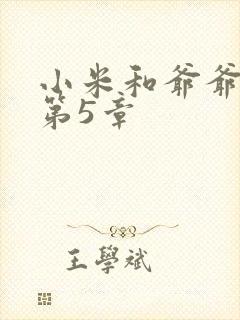 小米和爷爷
第5章
王學斌